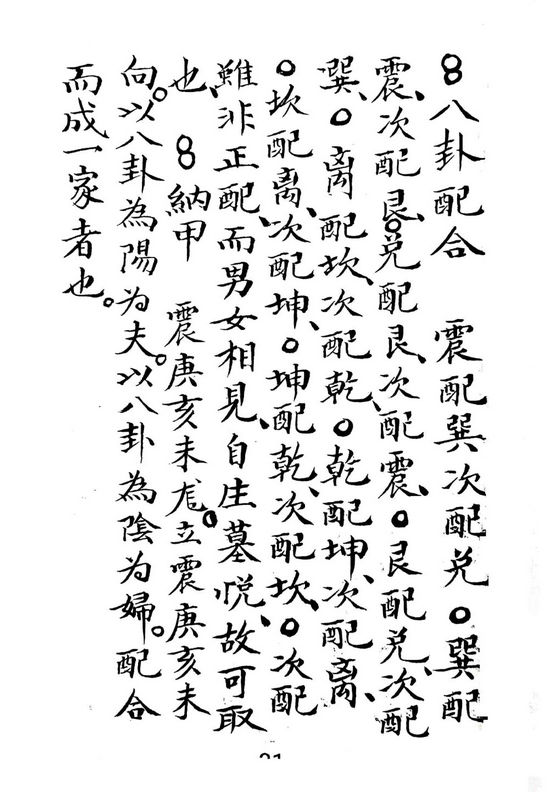 8八卦配合 震配巽次配兑。巽配
震、次配艮。兑配艮、次配震、。艮配兑、次配
巽、。离配坎、次配乾。乾配坤、次配离、
。坎配离、次配坤、。坤配乾、次配坎、。次配
雖非正配、而男女相見、自生墓悦、故可取
也、8納甲 震庚亥未龙。立震庚亥未
向。以八卦為陽为夫。以八卦為陰为婦。配合
而成一家者也。